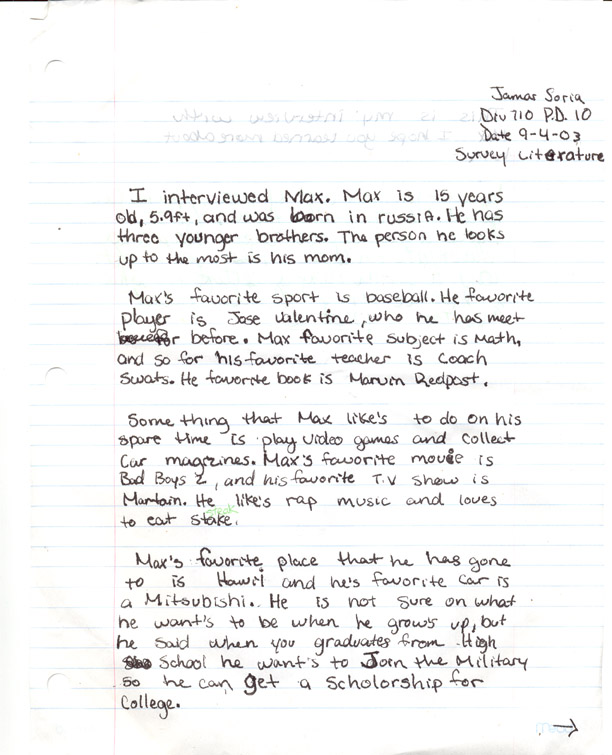 Jamar Soria
Div 710 P.D. 10
Date 9-4-03
Survey Literature
I interviewed Max. Max is 15 years
old, 5.9ft, and was born in russia. He has
three younger brothers. The person he looks
up to the most is his mom.
Max's favorite sport is baseball. He favorite
player is Jose Valentine, who he has meet
before. Max favorite subject is Math,
and so for his favorite teacher is Coach
Swats. He favorite book is Marvin Redpost.
Some thing that Max like's to do on his
spare time is play video games and collect
Car magzines. Max's favorite movie is
Bad Boys 2, and his favorite T.V show is
Martain. He like's rap music and loves
steak
to eat stake.
Max's favorite place that he has gone
to is Hawii and he's favorite car is
a Mitsubishi. He is not sure on what
he want's to be when he grows up, but
he said when you graduates from High
School he want's to Join the Military
so he can get a Scholorship for
College.